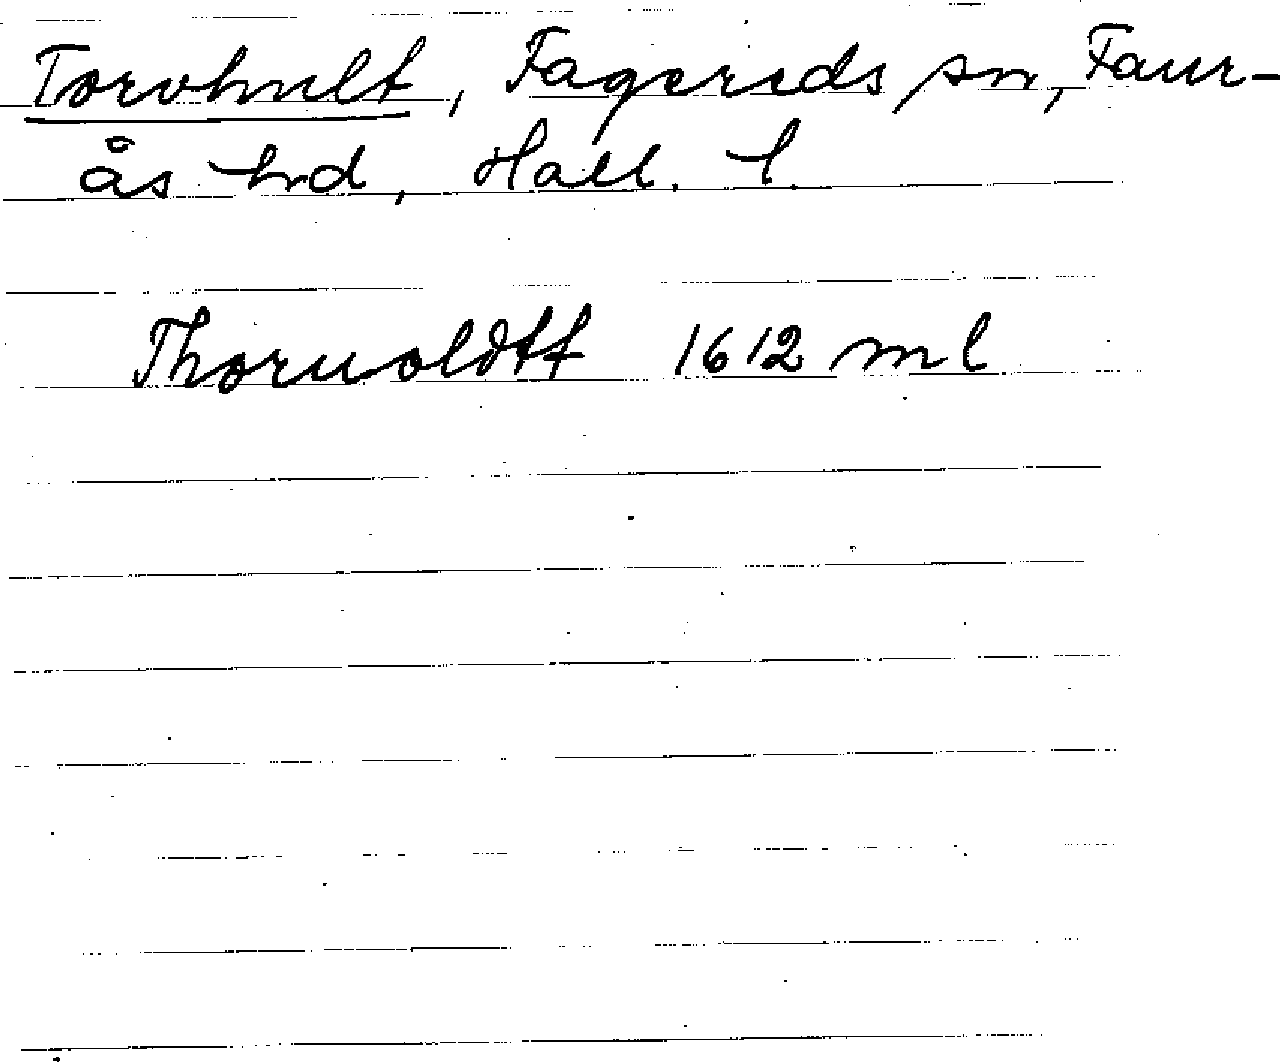 Torvhult, Fagereds sn, Faur-
ås hrd, Hall. l.
Thoruoldtt 1612 ml